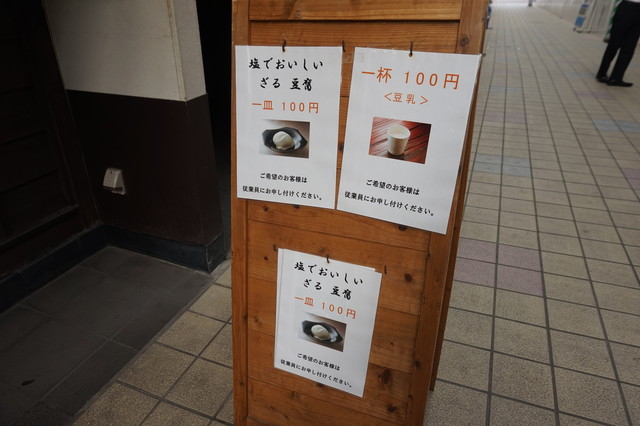 塩でおいしい
ざる 豆腐
一皿 100円
ご希望のお客様は
従業員にお申し付けください。
一杯 100円
＜豆乳＞
ご希望のお客様は
従業員にお申し付けください。
塩でおいしい
ざる 豆腐
一皿 100円
ご希望のお客様は
従業員にお申し付けください。